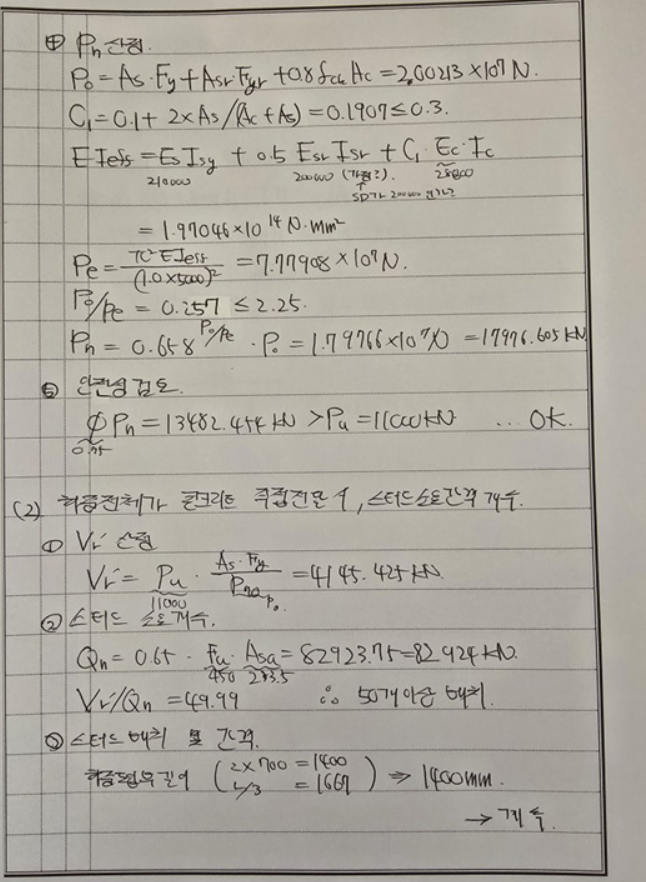 ④ Pn 산정.
Po = As·Fy + Asr·Fyr + 0.8 fck Ac = 2.00213 × 10⁷ N.
C₁ = 0.1 + 2 × As/(Ac + As) = 0.1907 ≤ 0.3.
EIeff = Es Isy + 0.5 Esr Isr + C₁ Ec·Ic
210000 200000 (가정?). 28800
SD가 200000
= 1.97046 × 10¹⁴ N·mm²
Pe = π² EIeff / (1.0 × 5000)² = 7.77908 × 10⁷ N.
Po/Pe = 0.257 ≤ 2.25.
Pn = 0.658^(Po/Pe) · Po = 1.79766 × 10⁷ N = 17976.605 kN
⑤ 안전성 검토.
ϕPn = 13482.454 kN > Pu = 11000 kN ... OK.
0.75
(2) 하중전체가 콘크리트 직접전달 시, 스터드 간격 개수.
① Vr' 산정
Vr' = Pu · As·Fy / Pno = 4145.425 kN.
11000 Po
② 스터드 개수.
Qn = 0.65 · Fu · Asa = 82923.75 = 82.924 kN.
450 283.5
Vr'/Qn = 49.99 ∴ 50개 이상 배치.
③ 스터드 배치 및 간격.
하중도입부 길이 ( 2 × 700 = 1400
L/3 = 1667 ) ⇒ 1400mm.
→ 계속.